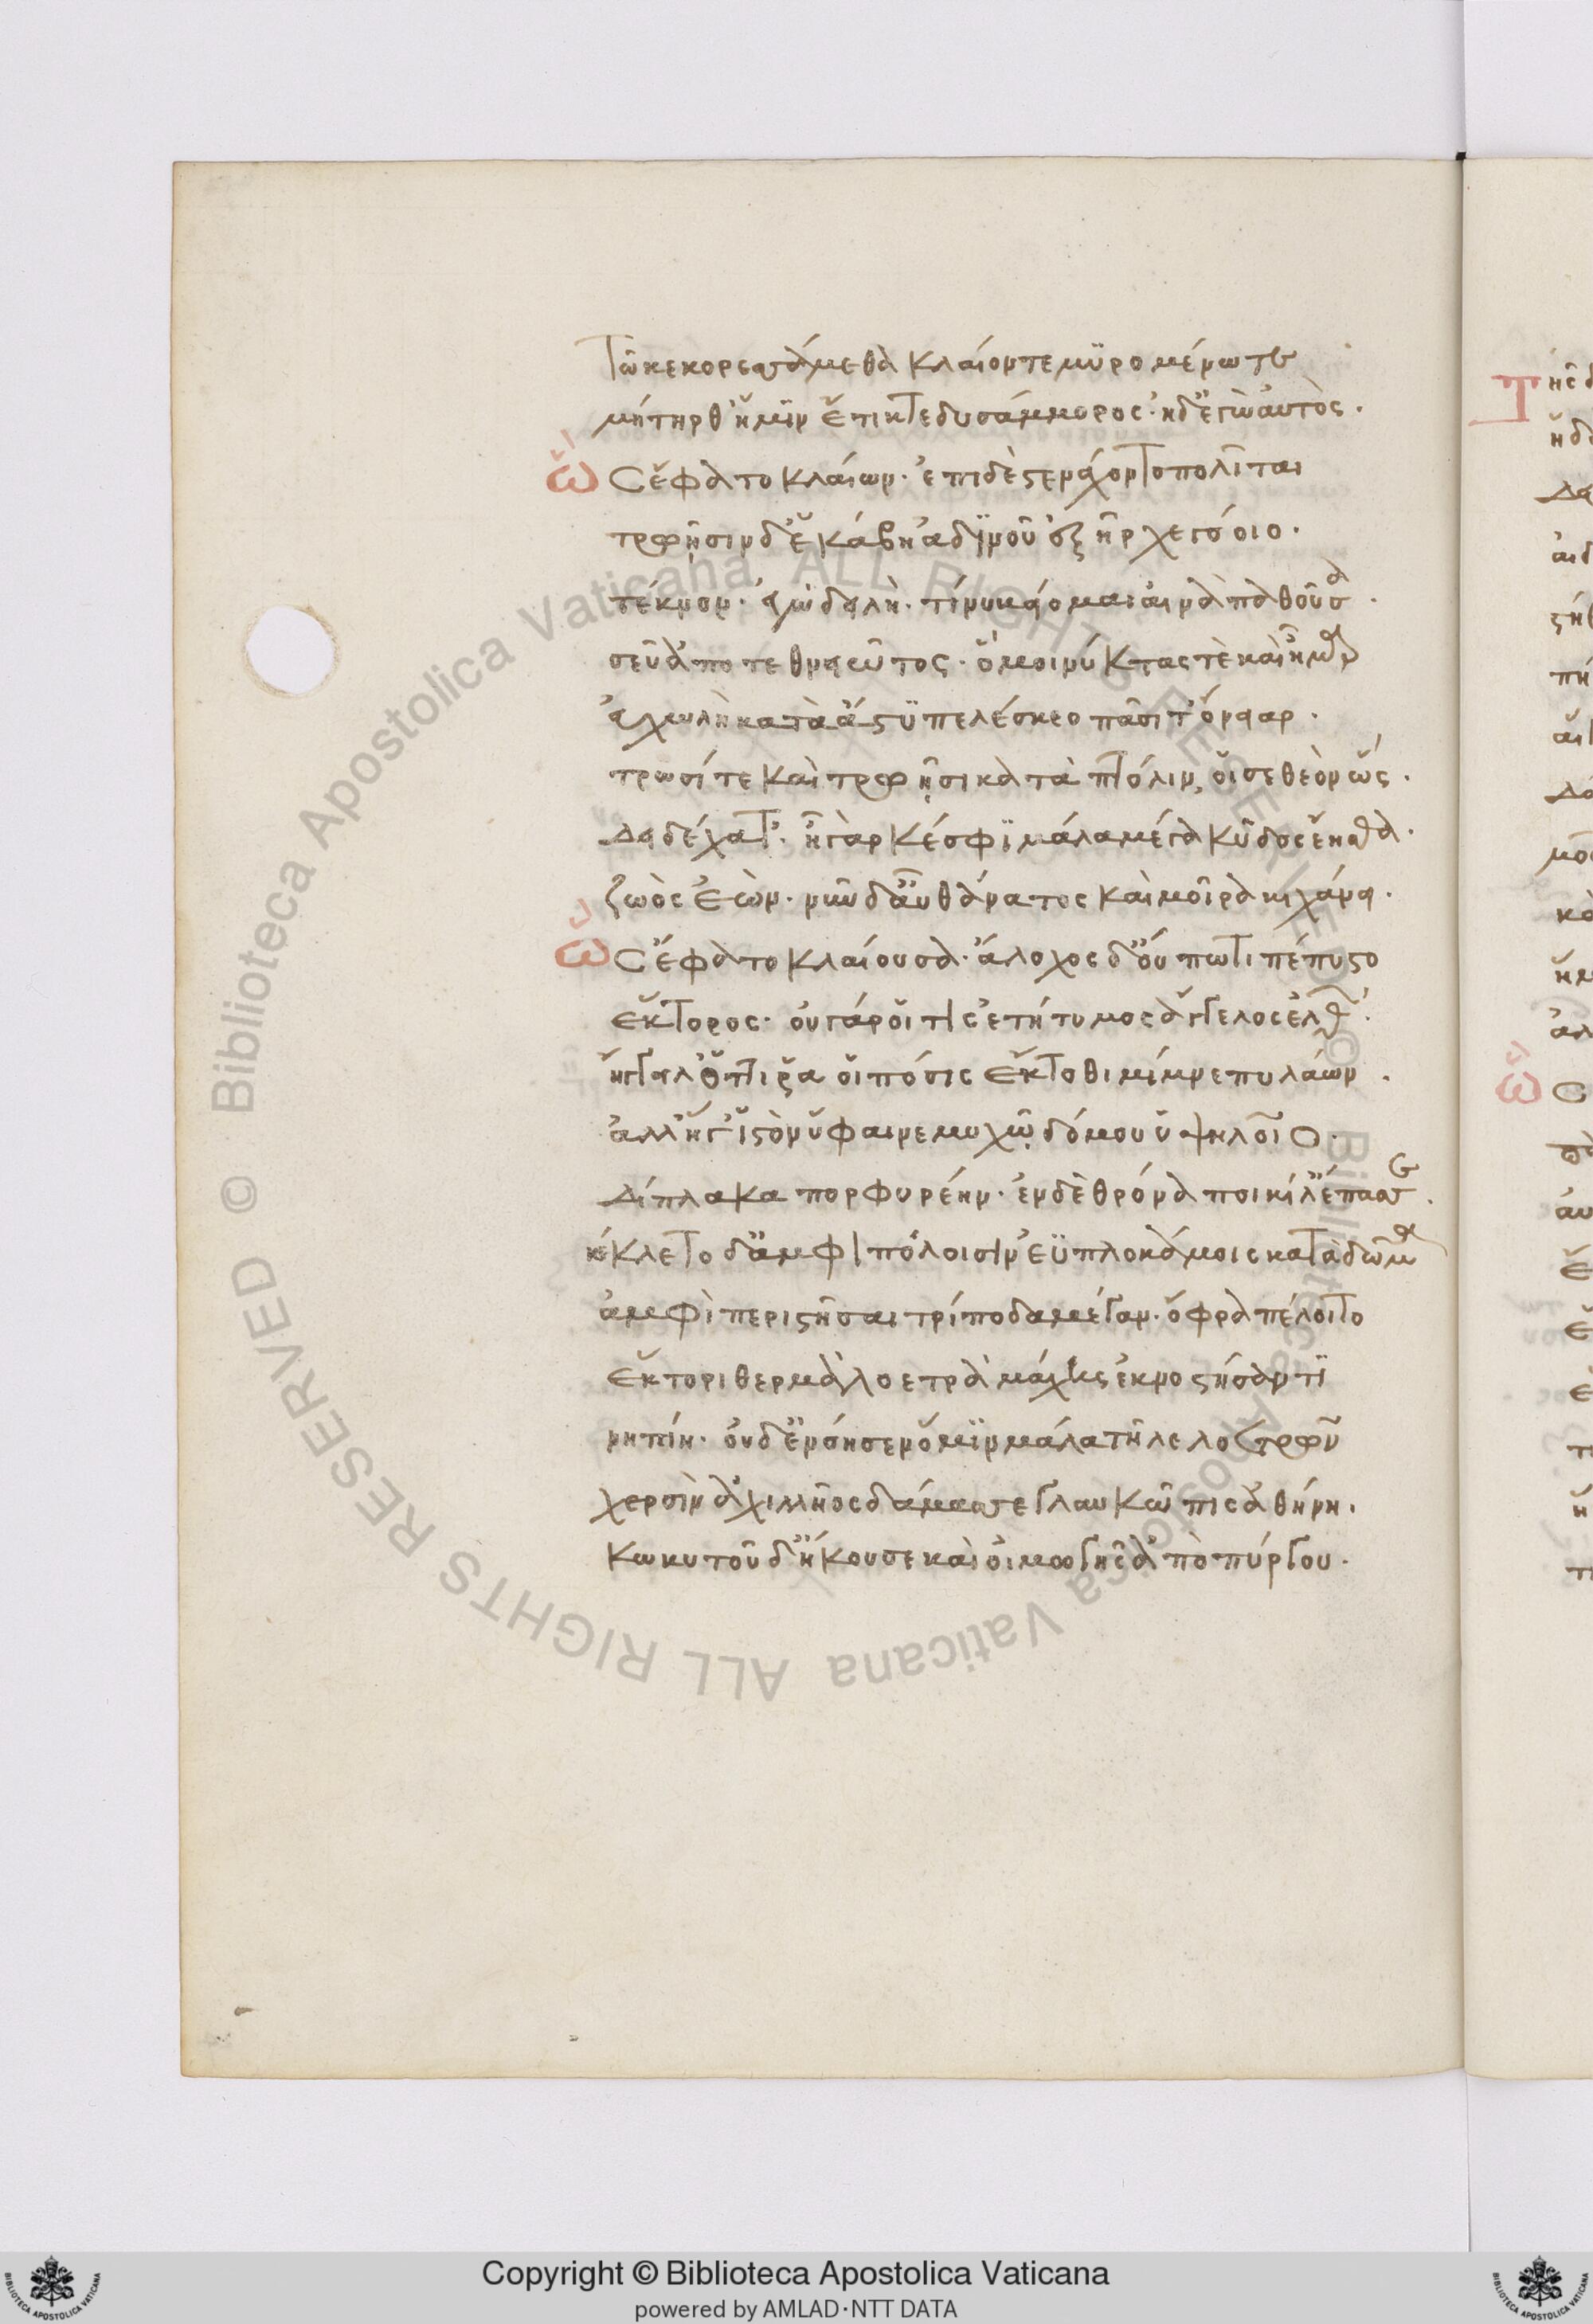 τῶ κε κορεσσάμεθα κλαίοντε μυρομένω τε
μήτηρ θ' ἥ μιν ἔτικτε δυσάμμορος· ἠδ' ἐγὼ αὐτός.
ὣς ἔφατο κλαίων· ἐπὶ δὲ στενάχοντο πολῖται
τρωῇσιν δ' ἑκάβη ἀδινοῦ ἐξῆρχε γόοιο.
τέκνον· ἐγὼ δειλή· τί νυ βείομαι αἰνὰ παθοῦσα.
σεῦ ἀποτεθνειῶτος· ὅ μοι νύκτας τὲ καὶ ἦμαρ
εὐχωλὴ κατὰ ἄστυ πελέσκεο πᾶσί τ' ὄνειαρ.
τρωσί τε καὶ τρωῇσι κατὰ πτόλιν, οἵ σε θεὸν ὥς.
δειδέχατ'. ἦ γὰρ κέ σφι μάλα μέγα κῦδος ἔησθα.
ζωὸς ἐών· νῦν δ' αὖ θάνατος καὶ μοῖρα κιχάνει.
ὣς ἔφατο κλαίουσα· ἄλοχος δ' οὔπω τι πέπυστο
ἕκτορος· οὐ γάρ οἵ τις ἐτήτυμος ἄγγελος ἐλθών.
ἤγγειλ' ὅττι ῥά οἱ πόσις ἔκτοθι μίμνε πυλάων.
ἀλλ' ἥ γ' ἱστὸν ὕφαινε μυχῷ δόμου ὑψηλοῖο.
δίπλακα πορφυρέην· ἐν δὲ θρόνα ποικίλ' ἔπασσε.
κέκλετο δ' ἀμφιπόλοισιν ἐϋπλοκάμοις κατὰ δῶμα
ἀμφὶ πυρὶ στῆσαι τρίποδα μέγαν· ὄφρα πέλοιτο
ἕκτορι θερμὰ λοετρὰ μάχης ἐκνοστήσαντι
νηπίη· οὐδ' ἐνόησεν ὅ μιν μάλα τῆλε λοετρῶν
χερσὶν ἀχιλλῆος δάμασε γλαυκῶπις ἀθήνη.
κωκυτοῦ δ' ἤκουσε καὶ οἰμωγῆς ἀπὸ πύργου.
Copyright © Biblioteca Apostolica Vaticana
powered by AMLAD·NTT DATA